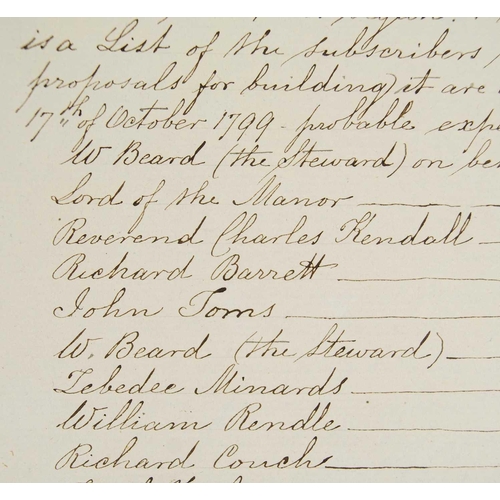 is a List of the subscribers,
proposals for building) it are
17th of October 1799 - probable
W Beard (the Steward) on
Lord of the Manor
Reverend Charles Kendall
Richard Barrett
John Toms
W. Beard (the Steward)
Zebedee Minards
William Rendle
Richard Couch